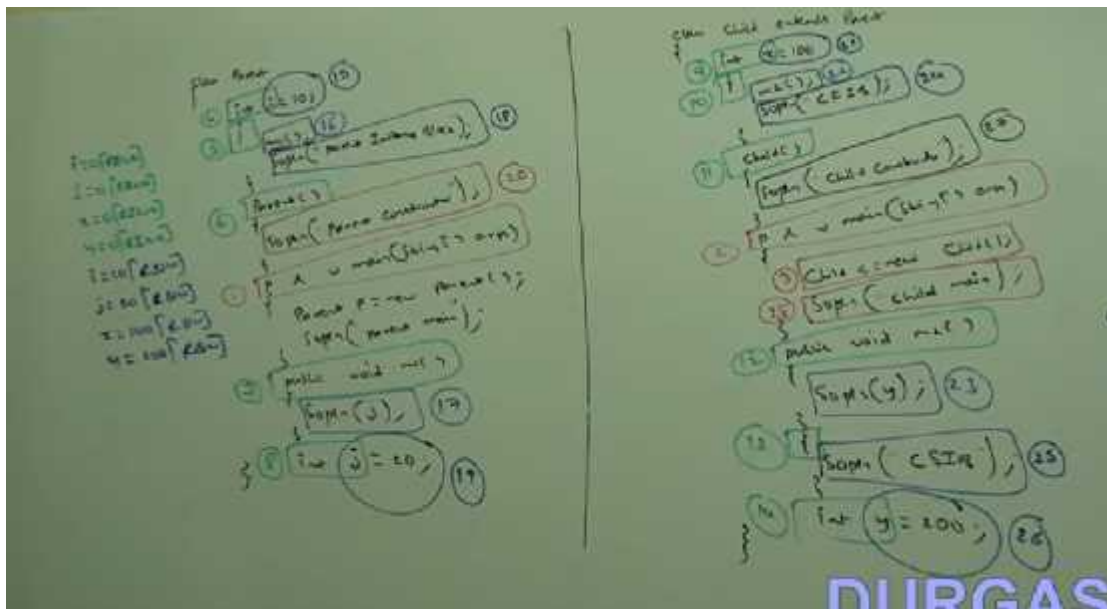 class Parent
{
④ int i=10; ⑮
⑤ { m1(); ⑯
Sopln("Parent Instance Block"); ⑱
}
⑥ Parent()
{
Sopln("Parent Constructor"); ⑳
}
① p s v main(String[] args)
{
Parent p = new Parent();
Sopln("Parent main");
}
⑦ public void m1()
{
Sopln(j); ⑰
}
⑧ int j = 20; ⑲
}
i=0[RIWO]
j=0[RIWO]
x=0[RIWO]
y=0[RIWO]
i=10[R&W]
j=20[R&W]
x=100[R&W]
y=200[R&W]
class Child extends Parent
{
⑨ int x=100; 21
⑩ { m2(); 22
Sopln("CFIB"); 24
}
⑪ Child()
{
Sopln("Child Constructor"); 27
}
② p s v main(String[] args)
{
③ Child c = new Child();
28 Sopln("Child main");
}
⑫ public void m2()
{
Sopln(y); 23
}
⑬ {
Sopln("CSIB"); 25
}
⑭ int y = 200; 26
}
DURGAS